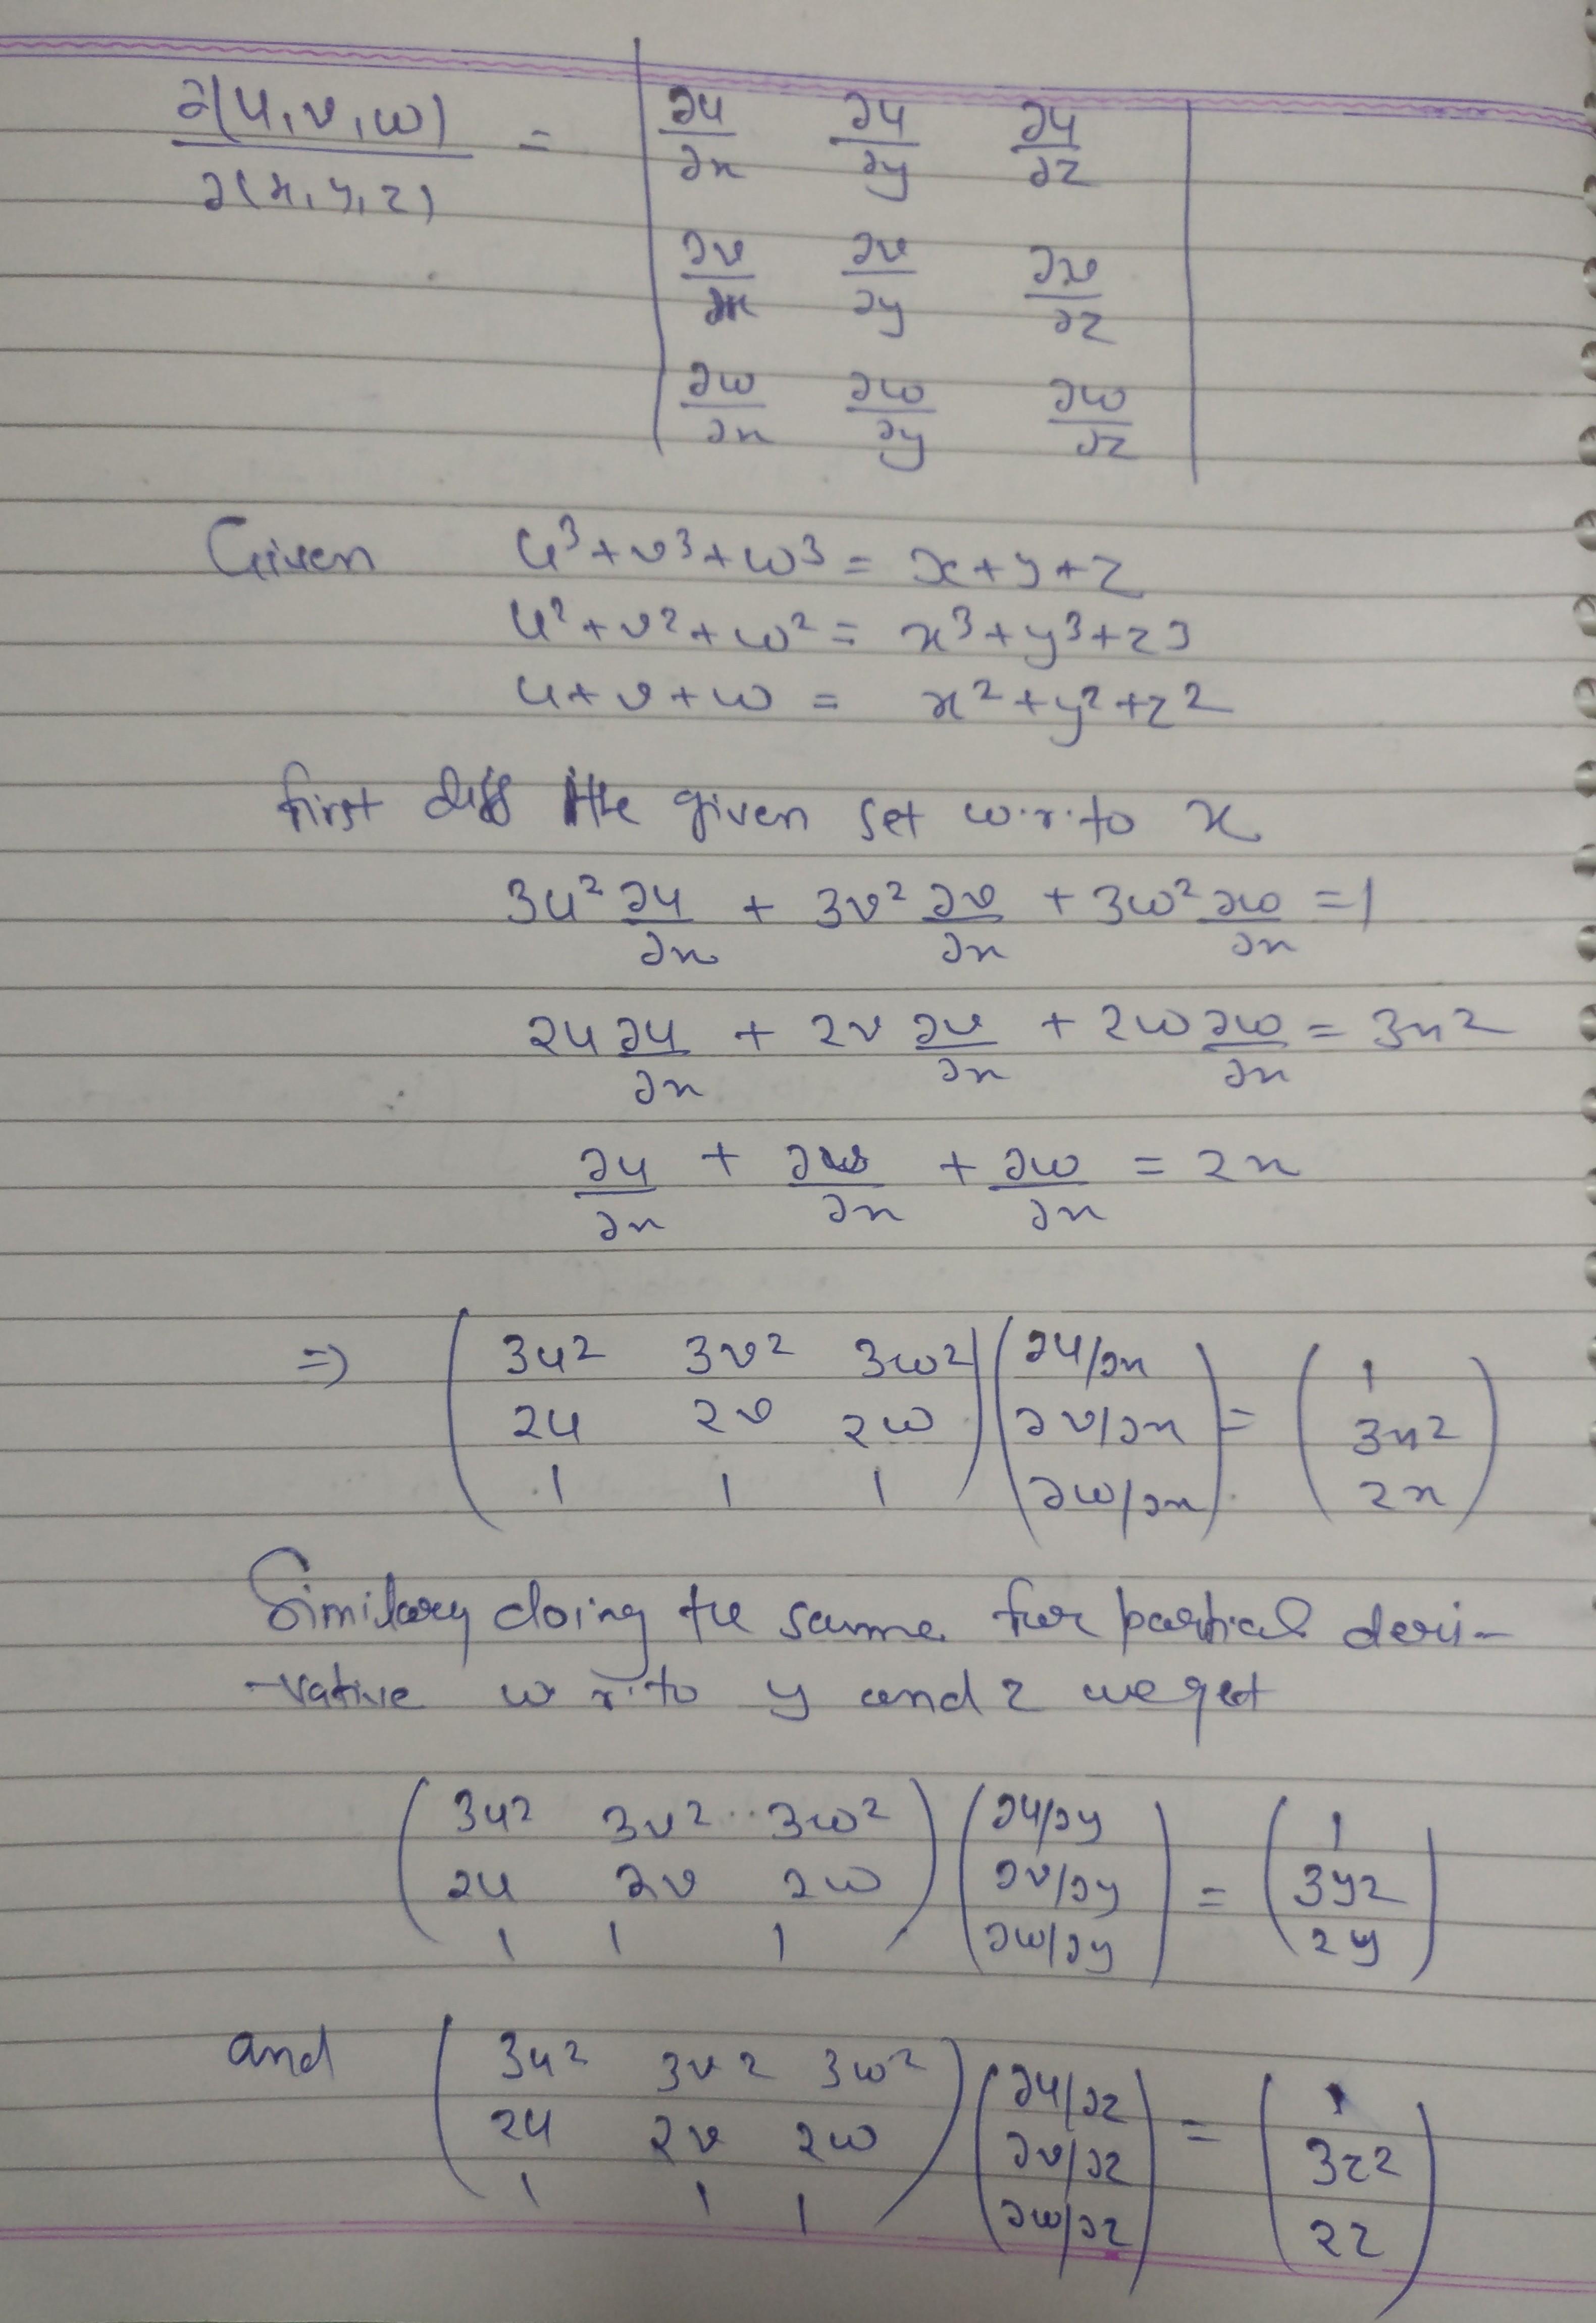 ∂(u,v,w)/∂(x,y,z) = | ∂u/∂x ∂u/∂y ∂u/∂z |
| ∂v/∂x ∂v/∂y ∂v/∂z |
| ∂w/∂x ∂w/∂y ∂w/∂z |
Given u³+v³+w³ = x+y+z
u²+v²+w² = x³+y³+z³
u+v+w = x²+y²+z²
first diff the given set w.r.to x
3u² ∂u/∂x + 3v² ∂v/∂x + 3w² ∂w/∂x = 1
2u ∂u/∂x + 2v ∂v/∂x + 2w ∂w/∂x = 3x²
∂u/∂x + ∂v/∂x + ∂w/∂x = 2x
⇒ ( 3u² 3v² 3w² ) ( ∂u/∂x ) = ( 1 )
( 2u 2v 2w ) ( ∂v/∂x ) ( 3x² )
( 1 1 1 ) ( ∂w/∂x ) ( 2x )
Similary doing the same for partial deri-
-vative w r.to y and z we get
( 3u² 3v² 3w² ) ( ∂u/∂y ) = ( 1 )
( 2u 2v 2w ) ( ∂v/∂y ) ( 3y² )
( 1 1 1 ) ( ∂w/∂y ) ( 2y )
and ( 3u² 3v² 3w² ) ( ∂u/∂z ) = ( 1 )
( 2u 2v 2w ) ( ∂v/∂z ) ( 3z² )
( 1 1 1 ) ( ∂w/∂z ) ( 2z )